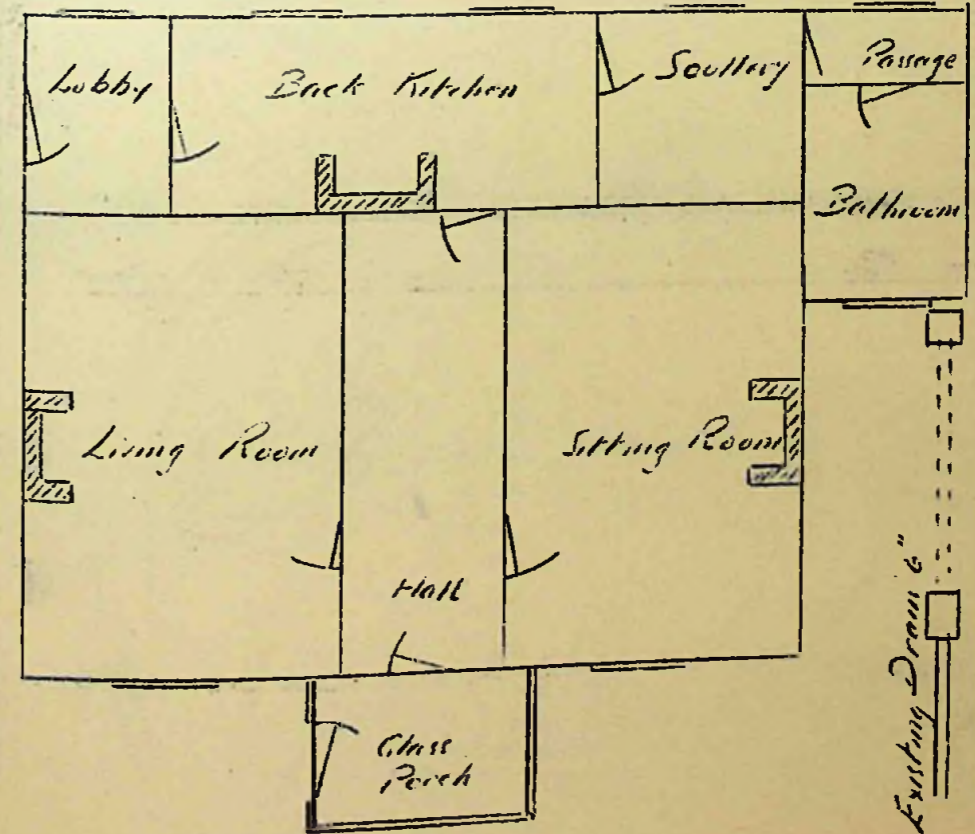 Lobby
Back Kitchen
Scullery
Passage
Bathroom
Living Room
Sitting Room
Hall
Glass
Porch
Existing Drain 6"